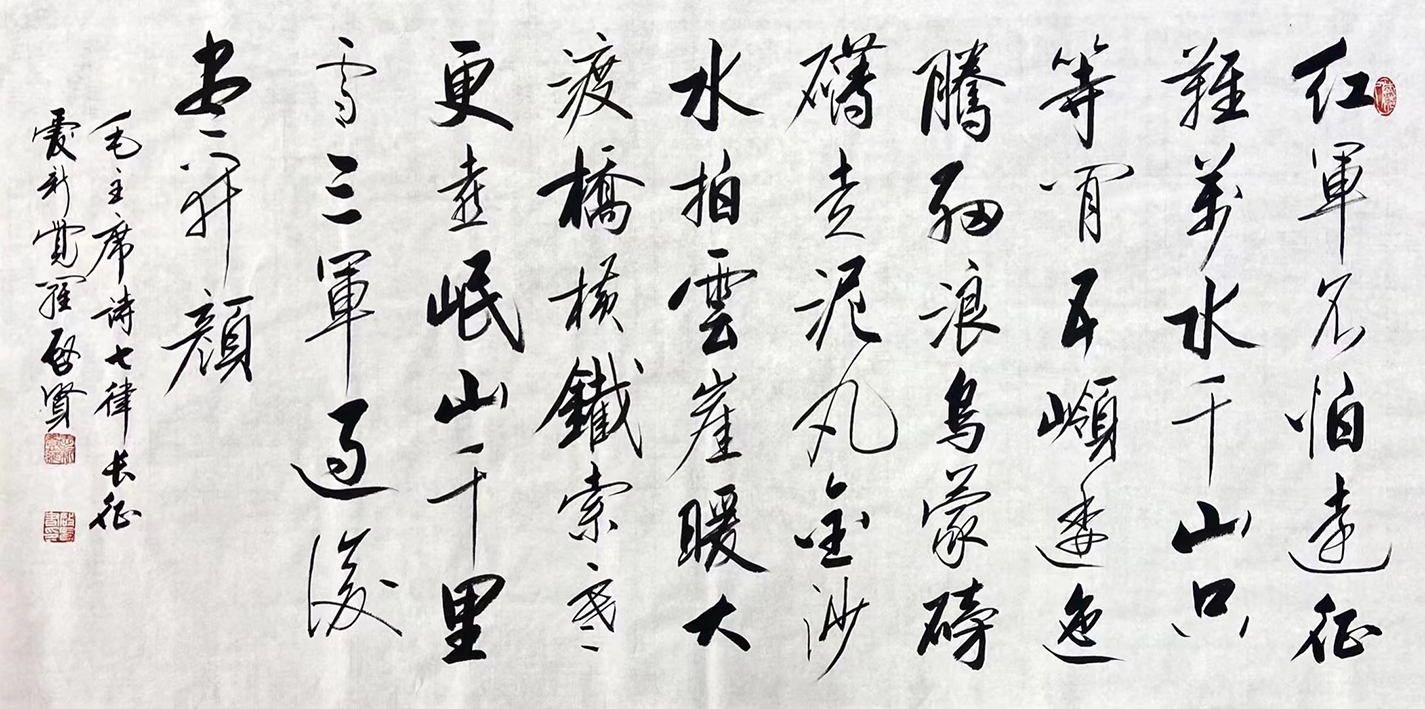 紅軍不怕遠征
難萬水千山只
等閒五嶺逶迤
騰細浪烏蒙磅
礴走泥丸金沙
水拍雲崖暖大
渡橋橫鐵索寒
更喜岷山千里
雪三軍過後
盡開顏
毛主席詩七律長征
愛新覺羅啟賢